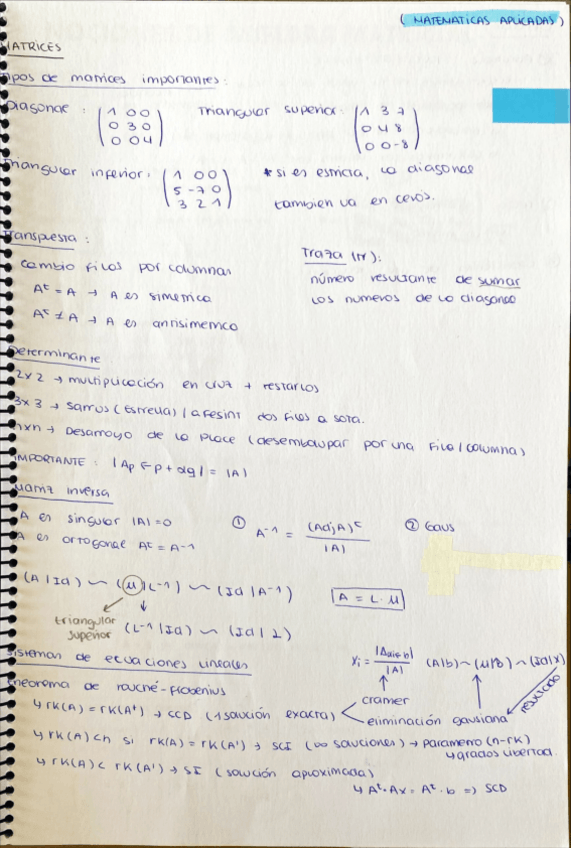 (MATEMATICAS APLICADAS)
MATRICES
Tipos de matrices importantes:
Diagonal: (1 0 0 / 0 3 0 / 0 0 4) Triangular superior: (1 3 7 / 0 4 8 / 0 0 -8)
Triangular inferior: (1 0 0 / 5 -7 0 / 3 2 1) * si es estricta, la diagonal
tambien va en ceros.
Transpuesta:
cambio filas por columnas
Aᵗ = A → A es simetrica
Aᵗ ≠ A → A es antisimetrica
Traza (tr):
número resultante de sumar
los numeros de la diagonal
Determinante
2x2 → multiplicación en cruz + restarlos
3x3 → Sarrus (Estrella) / añadir dos filas a sota.
nxn → Desarroyo de la Place (desembolupar por una fila / columna)
IMPORTANTE: |Ap F p + αq| = |A|
Matriz inversa
A es singular |A| = 0
A es ortogonal Aᵗ = A⁻¹
① A⁻¹ = (AdjA)ᵗ / |A|
② Gaus
(A | Id) ~ (μ | L⁻¹) ~ (Id | A⁻¹)
A = L · μ
triangular
superior
(L⁻¹ | Id) ~ (Id | L)
Sistemas de ecuaciones lineales
xᵢ = |Aai=b| / |A| (A|b) ~ (μ|B) ~ (Id|x)
resultado
Teorema de rouché-Frobenius
cramer
↳ rk(A) = rk(A') → SCD (1 solución exacta)
eliminación gausiana
↳ rk(A) < n si rk(A) = rk(A') → SCI (∞ soluciones) → parametro (n-rk)
↳ grados libertad.
↳ rk(A) < rk(A') → SI (solución aproximada)
↳ Aᵗ · Ax = Aᵗ · b => SCD